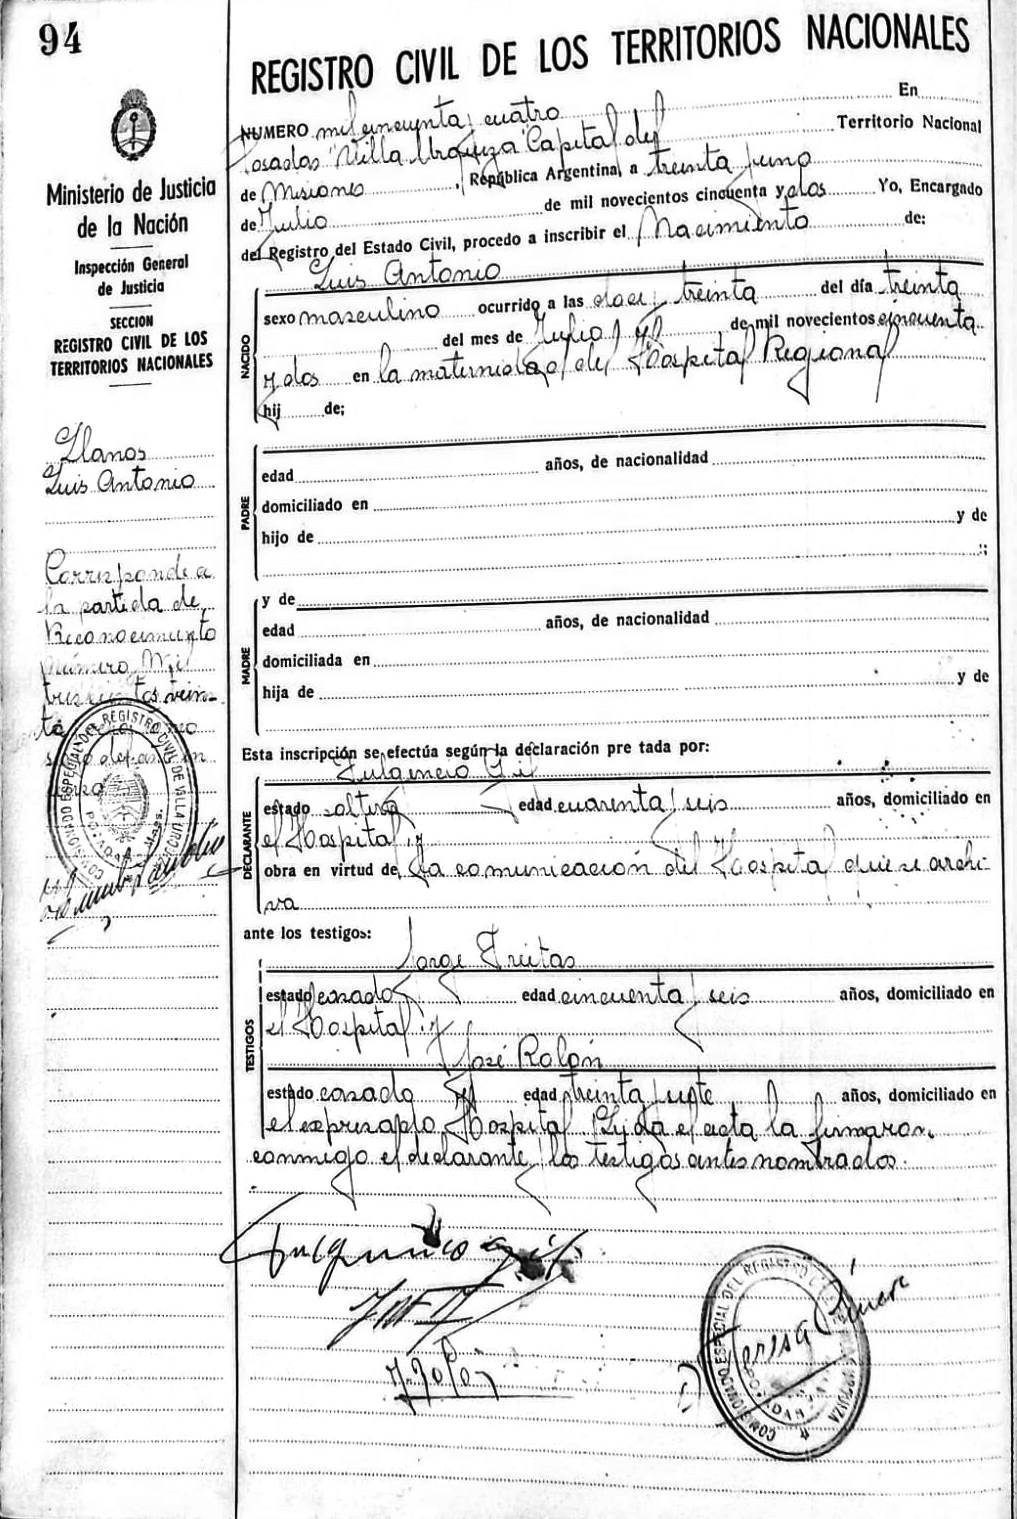 94
REGISTRO CIVIL DE LOS TERRITORIOS NACIONALES
Ministerio de Justicia
de la Nación
Inspección General
de Justicia
SECCION
REGISTRO CIVIL DE LOS
TERRITORIOS NACIONALES
Llanos
Luis Antonio
Corresponde a
la partida de
Reconocimiento
número Mil
trescientos vein-
NUMERO mil cincuenta y cuatro En
Posadas Villa Urquiza Capital del Territorio Nacional
de Misiones, República Argentina, a treinta y uno
de Julio de mil novecientos cincuenta y dos Yo, Encargado
del Registro del Estado Civil, procedo a inscribir el Nacimiento de:
NACIDO
Luis Antonio
sexo masculino ocurrido a las doce y treinta del día treinta
del mes de Julio de mil novecientos cincuenta
y dos en la maternidad del Hospital Regional
hij de;
PADRE
edad años, de nacionalidad
domiciliado en
hijo de y de
;
MADRE
y de
edad años, de nacionalidad
domiciliada en
hija de y de
Esta inscripción se efectúa según la declaración pre tada por:
DECLARANTE
Fulgencio Gil
estado soltero edad cuarenta y seis años, domiciliado en
el Hospital y
obra en virtud de la comunicación del Hospital que se archi-
va
ante los testigos:
TESTIGOS
Jorge Freitas
estado casado edad cincuenta y seis años, domiciliado en
el Hospital y
José Rolón
estado casado edad treinta y siete años, domiciliado en
el expresado Hospital Leída el acta la firmaron
conmigo el declarante y los testigos antes nombrados.
COMISIONADO ESPECIAL DEL REGISTRO CIVIL DE VILLA URQUIZA
POSADAS
Teresa